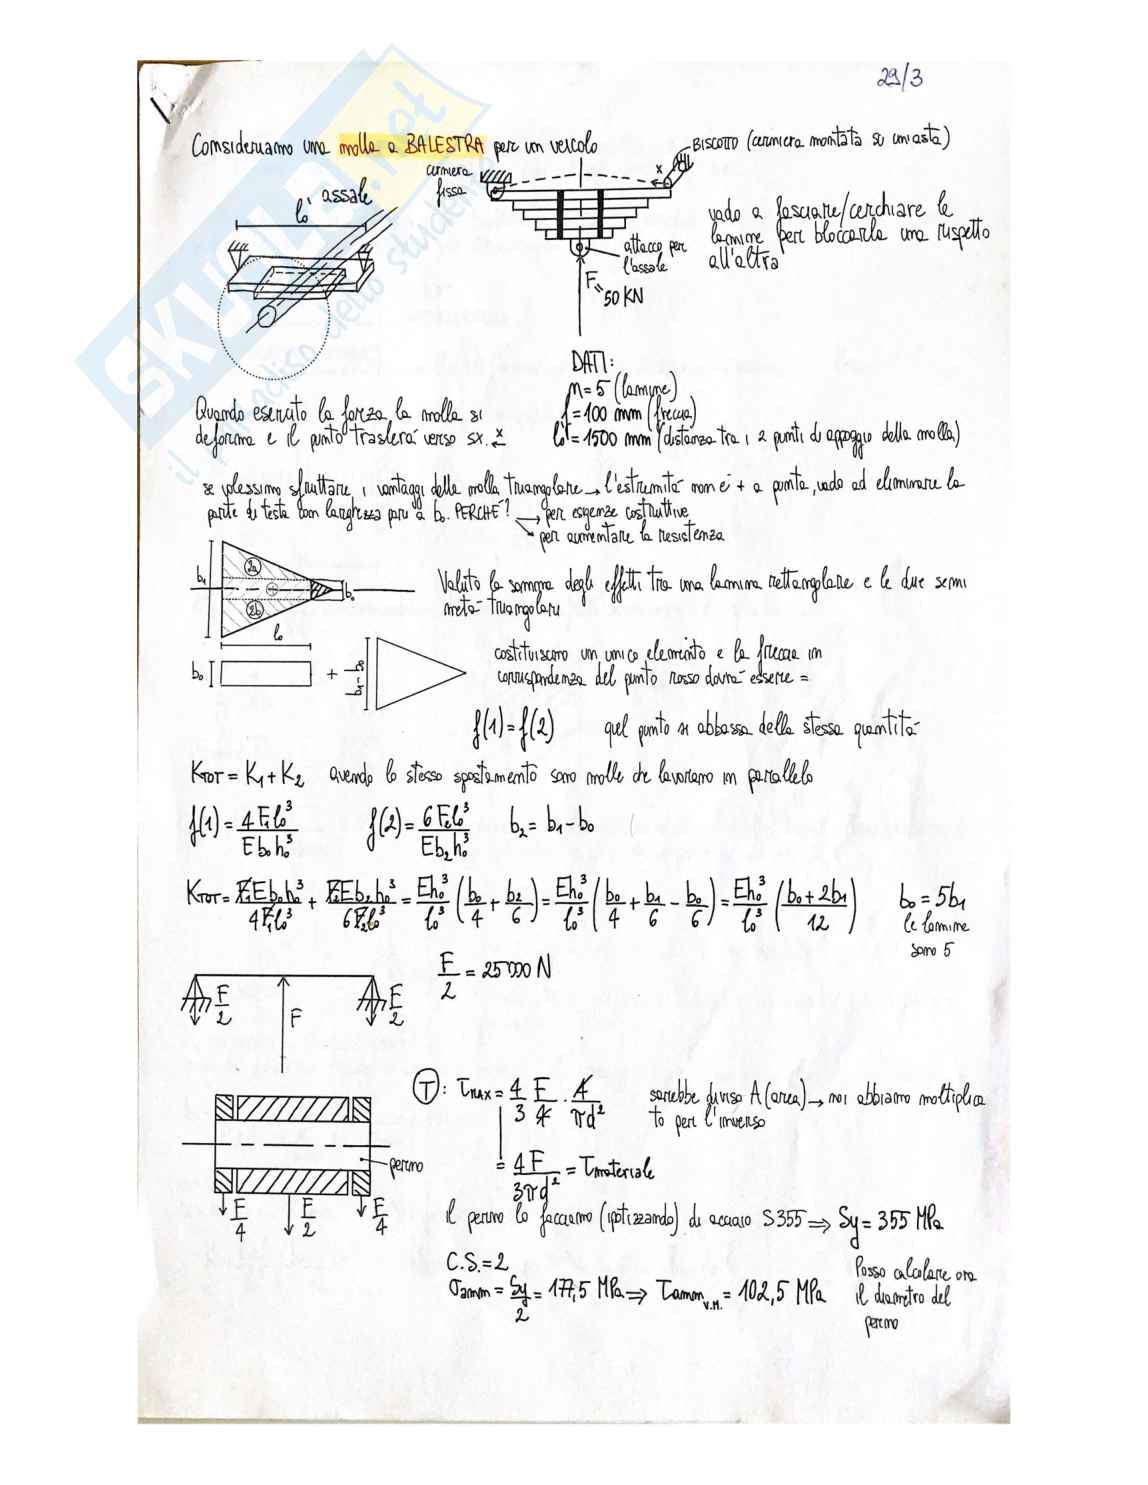 29/3
Consideriamo una molla a BALESTRA per un veicolo
BISCOTTO (cerniera montata su un'asta)
cerniera
fissa
x
l₀' assale
vado a fasciare/cerchiare le
lamine per bloccarla una rispetto
all'altra
attacco per
l'assale
F = 50 KN
DATI:
n = 5 (lamine)
f = 100 mm (freccia)
l₀' = 1500 mm (distanza tra i 2 punti di appoggio della molla)
Quando esercito la forza la molla si
deforma e il punto traslerà verso sx. x
se volessimo sfruttare i vantaggi della molla triangolare → l'estremità non è + a punta, vado ad eliminare la
parte di testa con larghezza pari a b₀. PERCHÈ? → per esigenze costruttive
→ per aumentare la resistenza
b₁ 2a 1 2b b₀
l₀
Valuto la somma degli effetti tra una lamina rettangolare e le due semi
metà triangolari
b₀ + b₁-b₀
costituiscono un unico elemento e la freccia in
corrispondenza del punto rosso dovrà essere =
f(1) = f(2) quel punto si abbassa della stessa quantità
K_TOT = K₁ + K₂ avendo lo stesso spostamento sono molle che lavorano in parallelo
f(1) = 4F₁l₀³/Eb₀h₀³ f(2) = 6F₂l₀³/Eb₂h₀³ b₂ = b₁ - b₀
K_TOT = F₁Eb₀h₀³/4F₁l₀³ + F₂Eb₂h₀³/6F₂l₀³ = Eh₀³/l₀³ (b₀/4 + b₂/6) = Eh₀³/l₀³ (b₀/4 + b₁/6 - b₀/6) = Eh₀³/l₀³ (b₀ + 2b₁/12) b₀ = 5b₁
le lamine
sono 5
F/2 = 25'000 N
F/2 F F/2
T: τ_MAX = 4/3 F/4 · 4/πd²
sarebbe diviso A (area) → noi abbiamo moltiplica
to per l'inverso
= 4F/3πd² = τ_materiale
perno
F/4 F/2 F/4
il perno lo facciamo (ipotizzando) di acciaio S355 ⇒ Sy = 355 MPa
C.S. = 2
σ_amm = Sy/2 = 177,5 MPa ⇒ τ_amm V.M. = 102,5 MPa
Posso calcolare ora
il diametro del
perno
SKUOLA.net
il paradiso dello studente